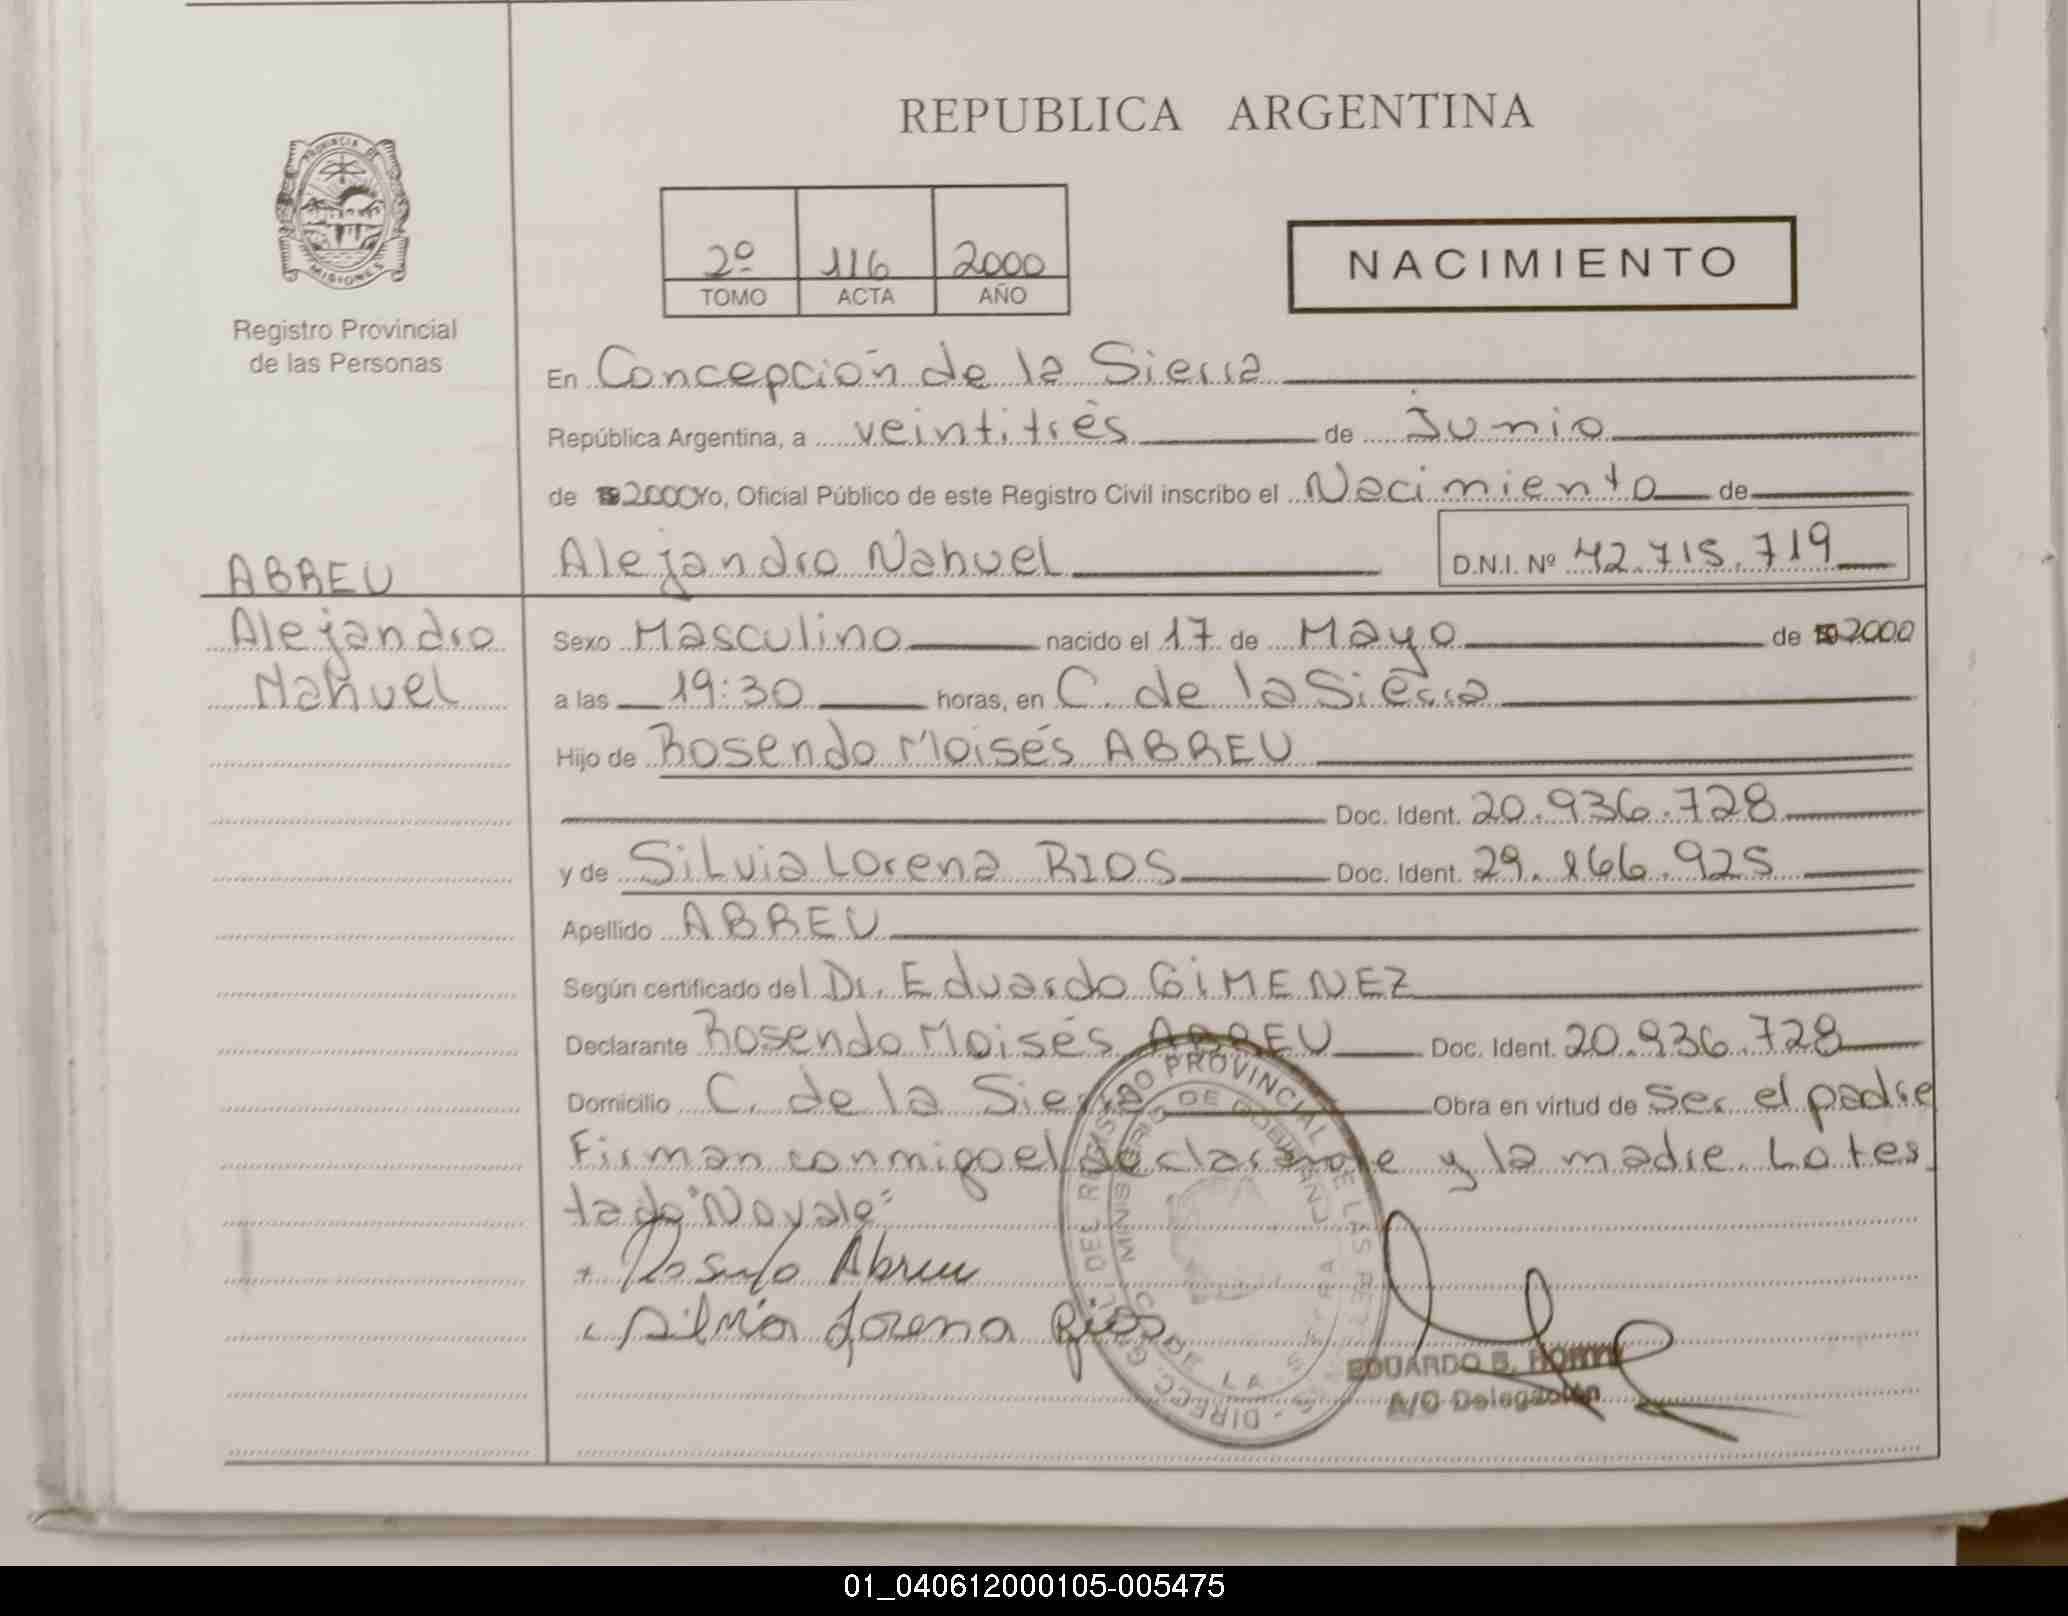 REPUBLICA ARGENTINA
PROVINCIA DE
MISIONES
Registro Provincial
de las Personas
2º 116 2000
TOMO ACTA AÑO
NACIMIENTO
En Concepción de la Sierra
República Argentina, a veintitrés de Junio
de 2000 Yo, Oficial Público de este Registro Civil inscribo el Nacimiento de
ABREU
Alejandro
Nahuel
Alejandro Nahuel D.N.I. Nº 42.715.719
Sexo Masculino nacido el 17 de Mayo de 2000
a las 19:30 horas, en C. de la Sierra
Hijo de Rosendo Moisés ABREU
Doc. Ident. 20.936.728
y de Silvia Lorena RIOS Doc. Ident. 29.166.925
Apellido ABREU
Según certificado del Dr. Eduardo GIMENEZ
Declarante Rosendo Moisés ABREU Doc. Ident. 20.936.728
Domicilio C. de la Sierra Obra en virtud de Ser el padre
Firman conmigo el declarante y la madre. Lo tes
tado "No vale"
Rosendo Abreu
Silvia Lorena Rios
DIRECC. GRAL. DEL REGISTRO PROVINCIAL DE LAS PERS.
MINISTERIO DE GOBIERNO
C. DE LA SIERRA
EDUARDO B.
A/C Delegación
01_040612000105-005475